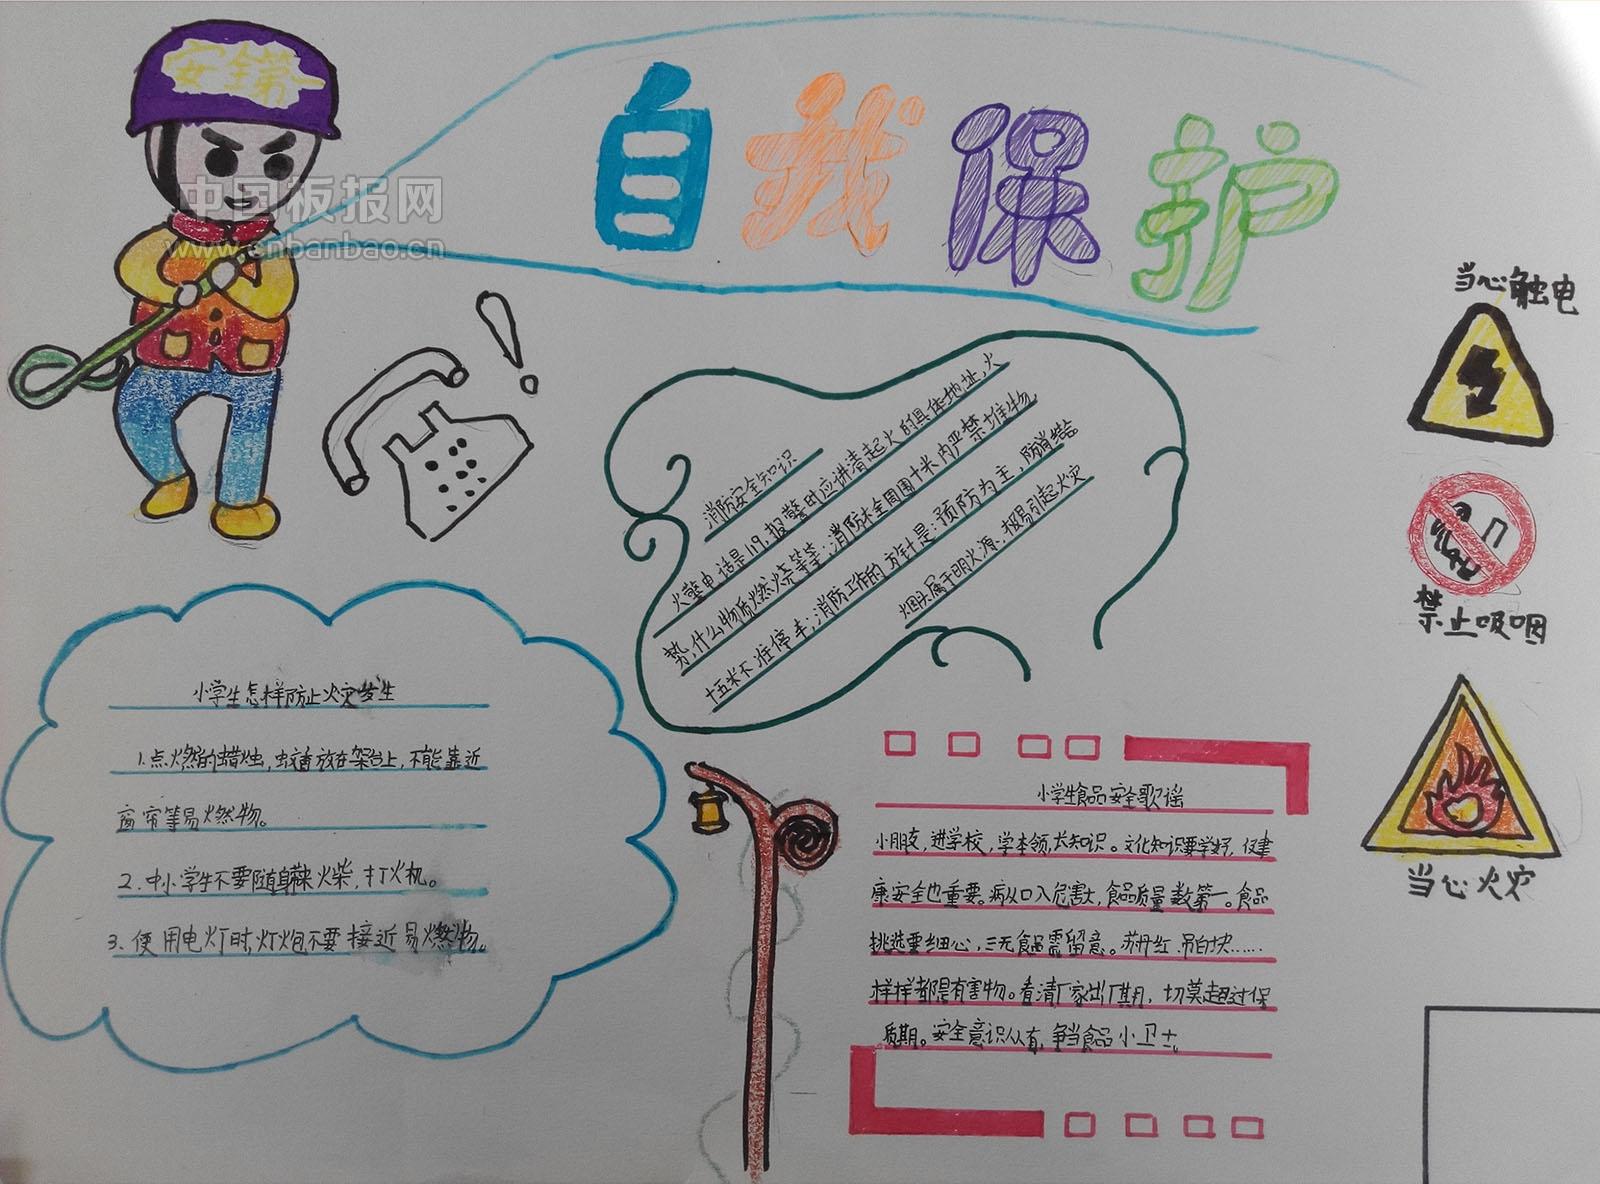 安全第一
自我保护
中国板报网
www.cnbanbao.cn
当心触电
禁止吸咽
当心火灾
消防安全知识
火警电话是119,报警时应讲清起火的具体地址,火
势,什么物质燃烧等等;消防栓周围十米内严禁堆物,
十五米不准停车;消防工作的方针是:预防为主,防消结
烟头属于明火源.极易引起火灾
小学生怎样防止火灾发生
1.点燃的蜡烛,蚊香放在架台上,不能靠近
窗帘等易燃物。
2.中小学生不要随身带来火柴,打火机。
3.使用电灯时,灯炮不要接近易燃物。
小学生食品安全歌谣
小朋友,进学校,学本领,长知识。文化知识要学好,健
康安全也重要。病从口入危害大,食品质量数第一。食品
挑选要细心,三无食品需留意。苏丹红.吊白块……
样样都是有害物。看清厂家出厂期,切莫超过保
质期。安全意识人人有,争当食品小卫士。